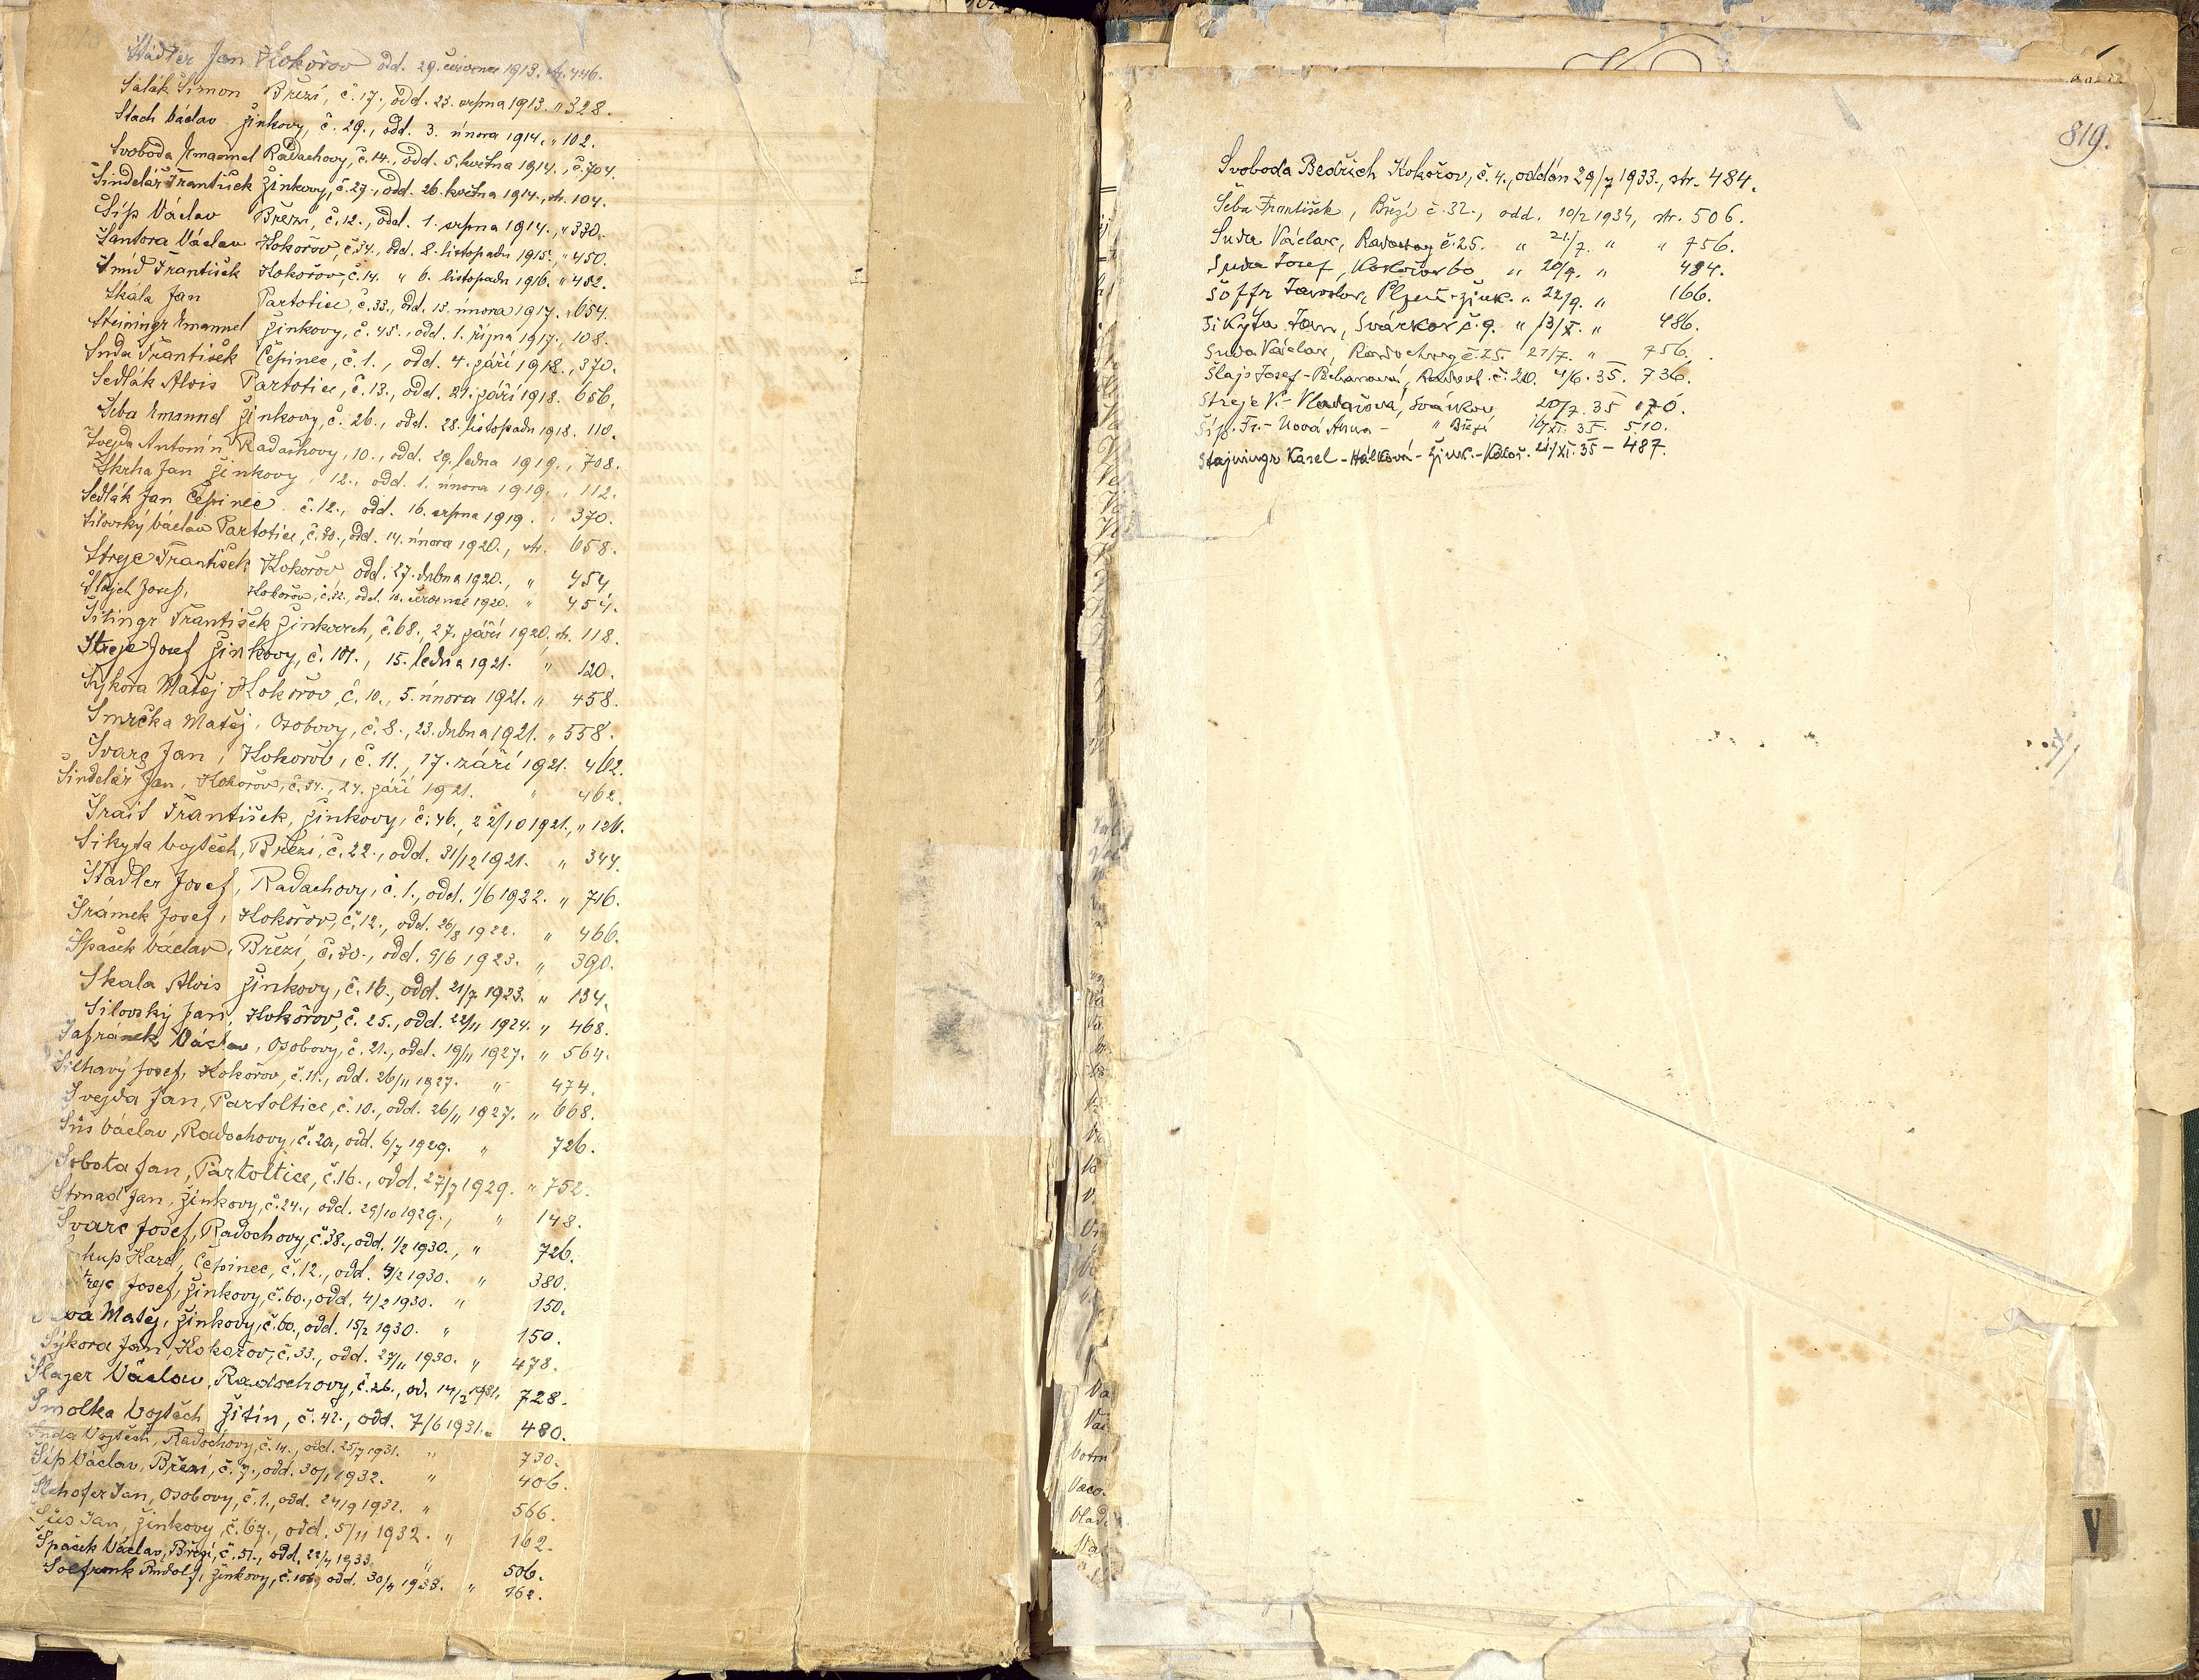 Štádler Jan Kokořov odd. 29. července 1913. str. 446.
Šalák Šimon Březí, č. 17., odd. 23. srpna 1913. " 328.
Stach Václav Žinkovy, č. 29., odd. 3. února 1914. " 102.
Svoboda Emanuel Radachovy, č. 14., odd. 5. května 1914., č. 704.
Šindelář František Žinkovy, č. 27., odd. 26. května 1914., str. 104.
Šíp Václav Březí, č. 12., odd. 1. srpna 1914., " 330.
Šantora Václav Kokořov, č. 34., odd. 8. listopadu 1915., " 450.
Šmíd František Kokořov, č. 14. " 6. listopadu 1916. " 452.
Skála Jan Partotice, č. 33., odd. 13. února 1917. " 654.
Steiningr Emanuel Žinkovy, č. 45., odd. 1. října 1917., 108.
Suda František Čepinec, č. 1., odd. 4. září 1918., 370.
Sedlák Alois Partotice, č. 13., odd. 21. září 1918. 656.
Šeba Emanuel Žinkovy, č. 26., odd. 28. listopadu 1918. 110.
Švejda Antonín Radachovy, 10., odd. 29. ledna 1919., 708.
Škrha Jan Žinkovy, 12., odd. 1. února 1919. " 112.
Sedlák Jan Čepinec. č. 12., odd. 16. srpna 1919. " 370.
Silovský Václav Partotice, č. 30., odd. 14. února 1920., str. 658.
Strejc František Kokořov odd. 27. dubna 1920., " 454
Josef, Kokořov, č. 32., odd. července 1920. " 454.
František Žinkovech, č. 68., 27. září 1920, str. 118.
Strejc Josef Žinkovy, č. 101., 15. ledna 1921. " 120.
Sýkora Matěj Kokořov, č. 10., 5. února 1921. " 458.
Smrčka Matěj, Osobovy, č. 8., 23. dubna 1921. " 558.
Švarc Jan, Kokořov, č. 11., 17. září 1921. 462.
Šindelář Jan, Kokořov, č. 34., 24. září 1921. " 462.
Šrait František, Žinkovy, č. 46., 22/10 1921., " 126.
Sikyta Vojtěch, Březí, č. 22., odd. 31/12 1921. " 344.
Štádler Josef, Radachovy, č. 1., odd. 1/6 1922. " 716.
Šrámek Josef, Kokořov, č. 12., odd. 26/8 1922. " 466.
Špaček Václav, Březí, č. 30., odd. 9/6 1923. " 390.
Skala Alois Žinkovy, č. 16., odd. 21/7 1923. " 134.
Silovský Jan, Kokořov, č. 25., odd. 22/11 1924. " 468.
Šafránek Václav, Osobovy, č. 21., odd. 19/11 1927. " 564.
Šilhavý Josef, Kokořov, č. 11., odd. 26/11 1927. " 474.
Švejda Jan, Partoltice, č. 10., odd. 26/11 1927. " 668.
Šůs Václav, Radochovy, č. 20., odd. 6/7 1929. " 726.
Sobota Jan, Partoltice, č. 16., odd. 27/7 1929. " 752.
Strnad Jan, Žinkovy, č. 24., odd. 29/10 1929., " 148.
Švarc Josef, Radochovy, č. 38., odd. 1/2 1930., " 726.
kup Karel, Čepinec, č. 12., odd. 4/2 1930. " 380.
trejc Josef, Žinkovy, č. 60., odd. 4/2 1930. " 150.
va Matěj, Žinkovy, č. 60., odd. 15/2 1930. " 150.
Sýkora Jan, Kokořov, č. 33., odd. 27/11 1930. " 478.
Šlajer Václav, Radochovy, č. 26., od. 14/2 1931. 728.
Smolka Vojtěch Žitín, č. 42., odd. 7/6 1931. " 480.
Suda Vojtěch, Radochovy, č. 14., odd. 25/7 1931. " 730.
Šíp Václav, Březí, č. 7., odd. 30/1 1932. " 406.
Jan, Osobovy, č. 1., odd. 24/9 1932. " 566.
Šůs Jan, Žinkovy, č. 67., odd. 5/11 1932. " 162.
Špaček Václav, Březí, č. 51., odd. 22/4 1933. " 506.
Rudolf, Žinkovy, č. 106, odd. 30/4 1933. " 162.
819.
Svoboda Bedřich Kokořov, č. 4., oddán 29/7 1933., str. 484.
Šeba František, Březí č. 32., odd. 10/2 1934, str. 506.
Suda Václav, Radochovy č. 25. " 21/7. " " 756.
Suda Josef, Kokořov 60 " 20/9. " 484.
Šoffr Jaroslav, Plzeň - Žink. " 22/9. " 166.
Sikyta Jan, Svárkov č. 9. " 13/X. " 486.
Suda Václav, Radochovy č. 25. 21/7. " 756.
Šlajs Josef - Radoch. č. 20. 4/6. 35. 736.
Strejc V. - Vladařová, Svárkov 20/7. 35 170.
Šíp. Fr. - Nová Anna - " Březí 16/XI. 35. 510.
Štajningr Karel - Hálková - Žink. - Kokoř. 21/XI. 35 - 487.
V